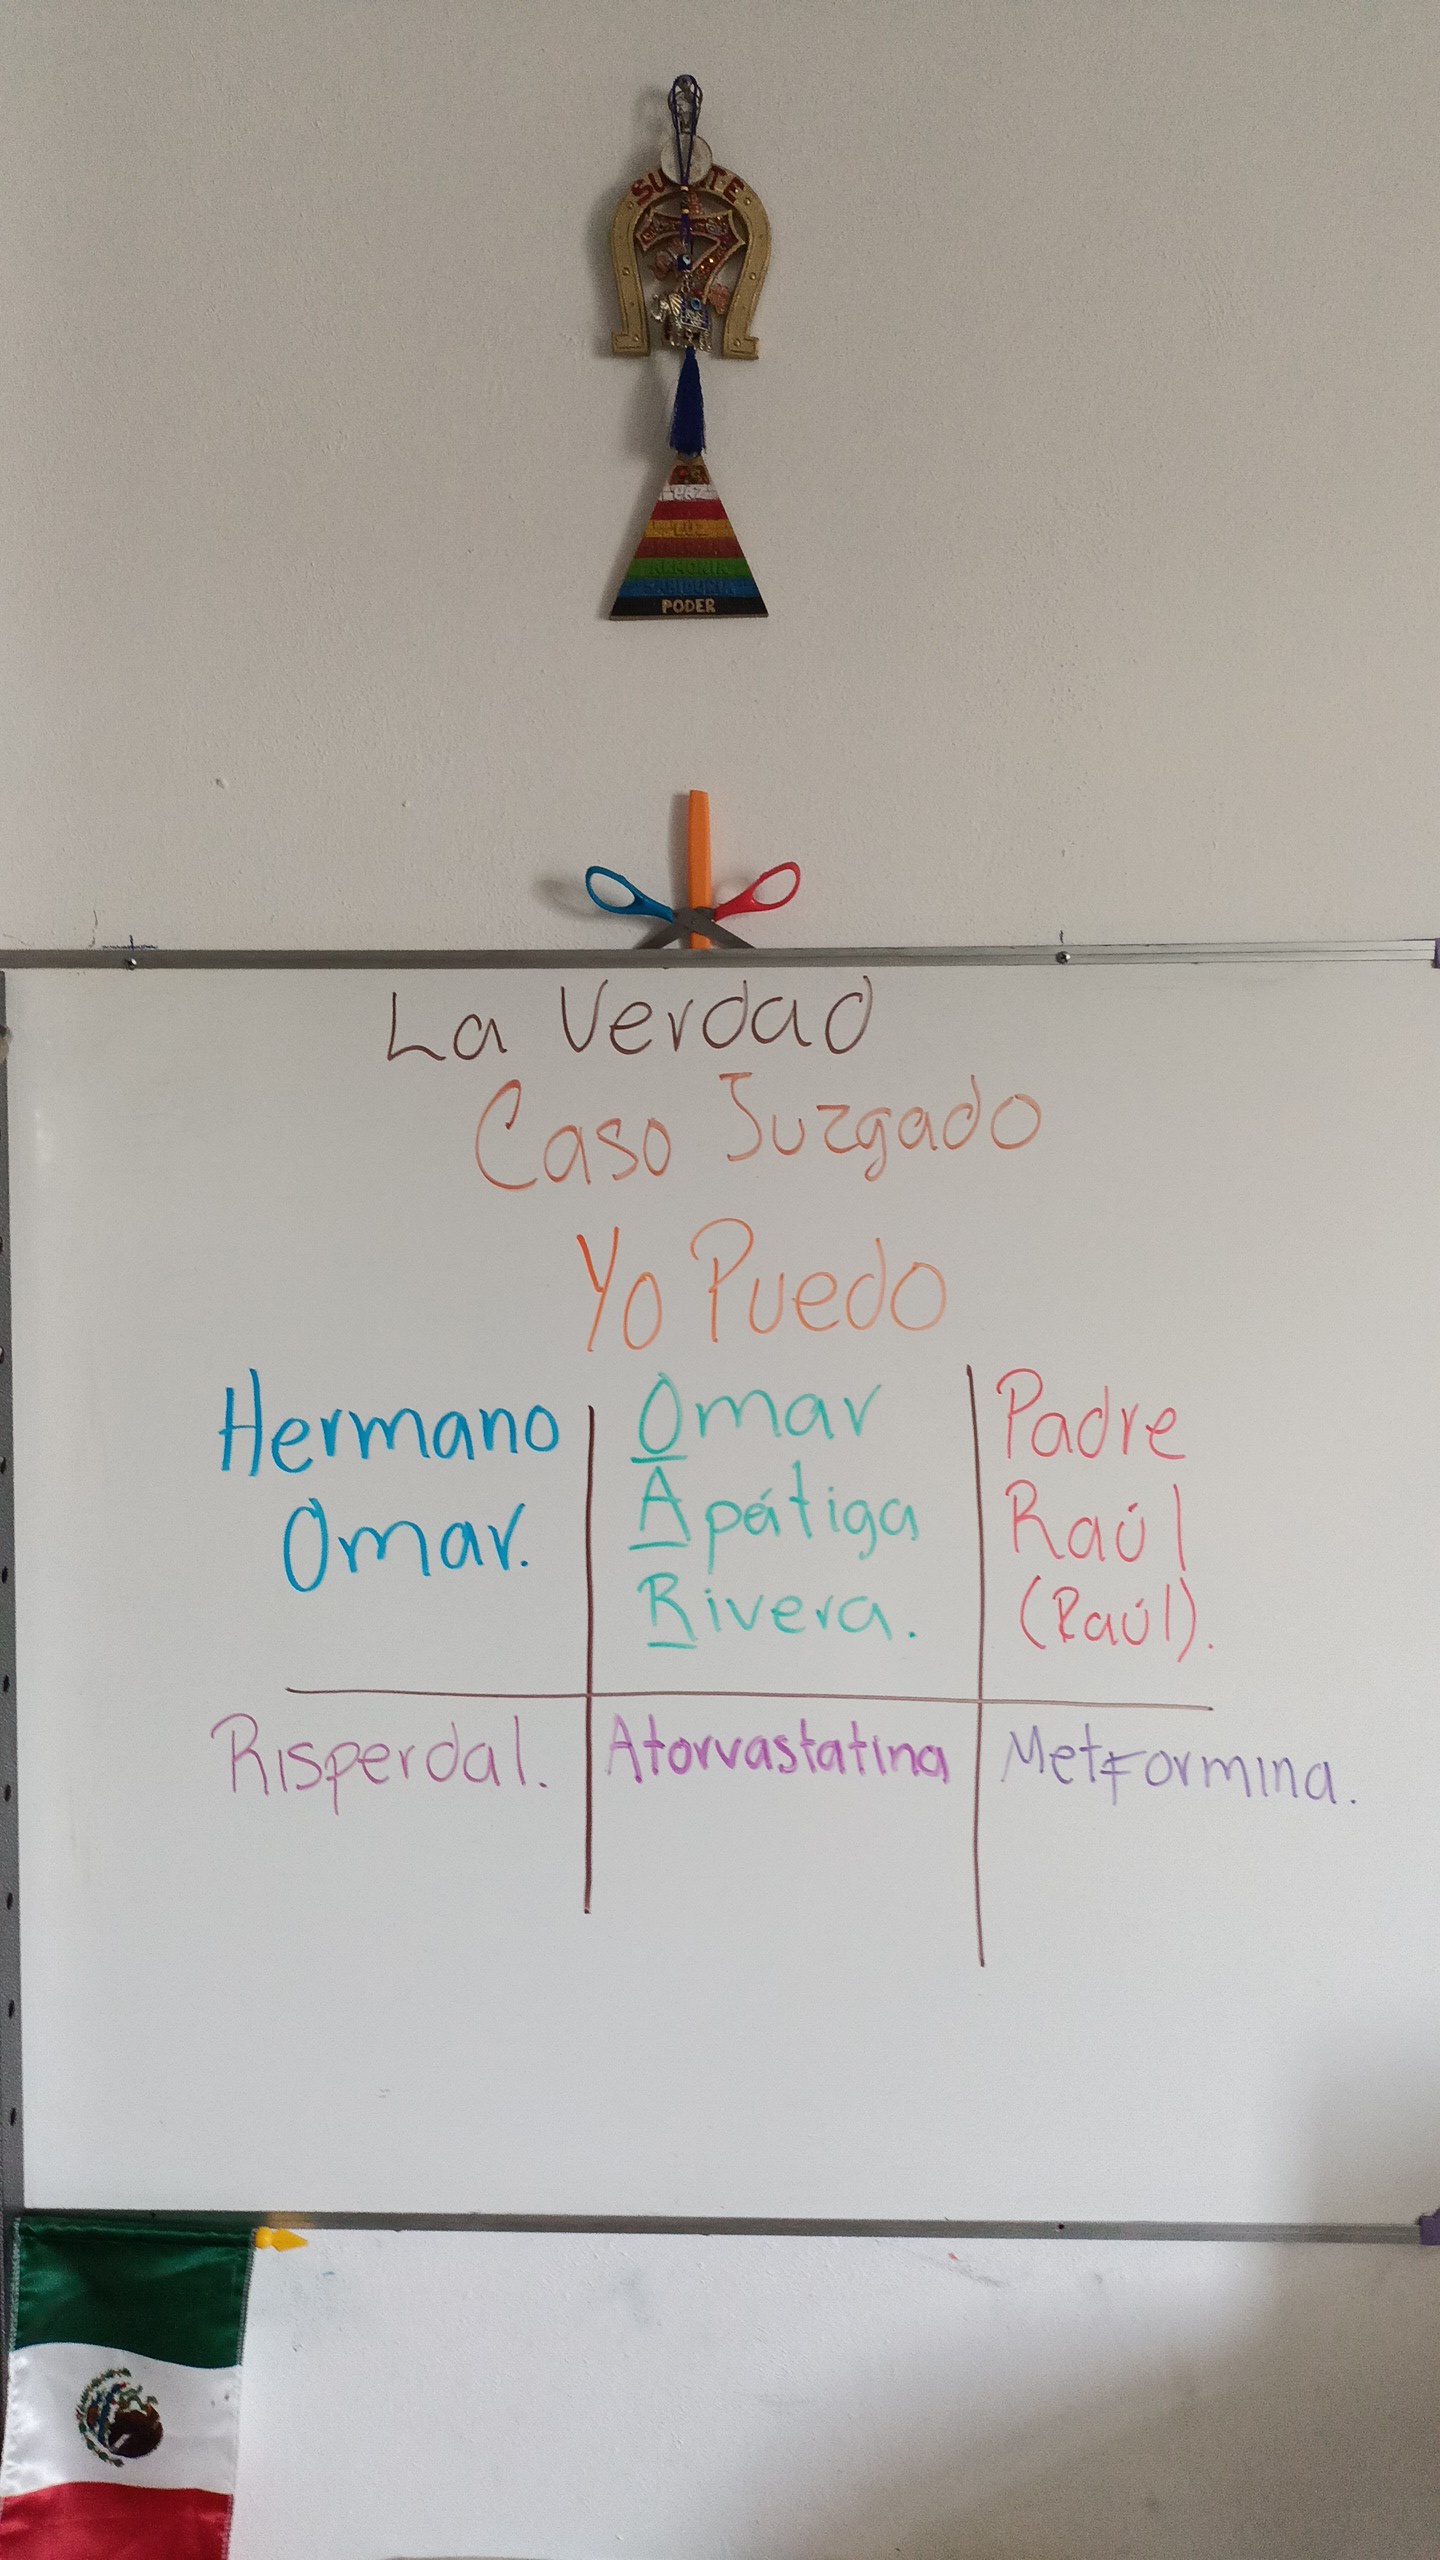 PAZ
LUZ
ARMONIA
SABIDURIA
PODER
La Verdad
Caso Juzgado
Yo Puedo
Hermano
Omar.
Omar
Apátiga
Rivera.
Padre
Raúl
(Raúl).
Risperdal.
Atorvastatina
Metformina.